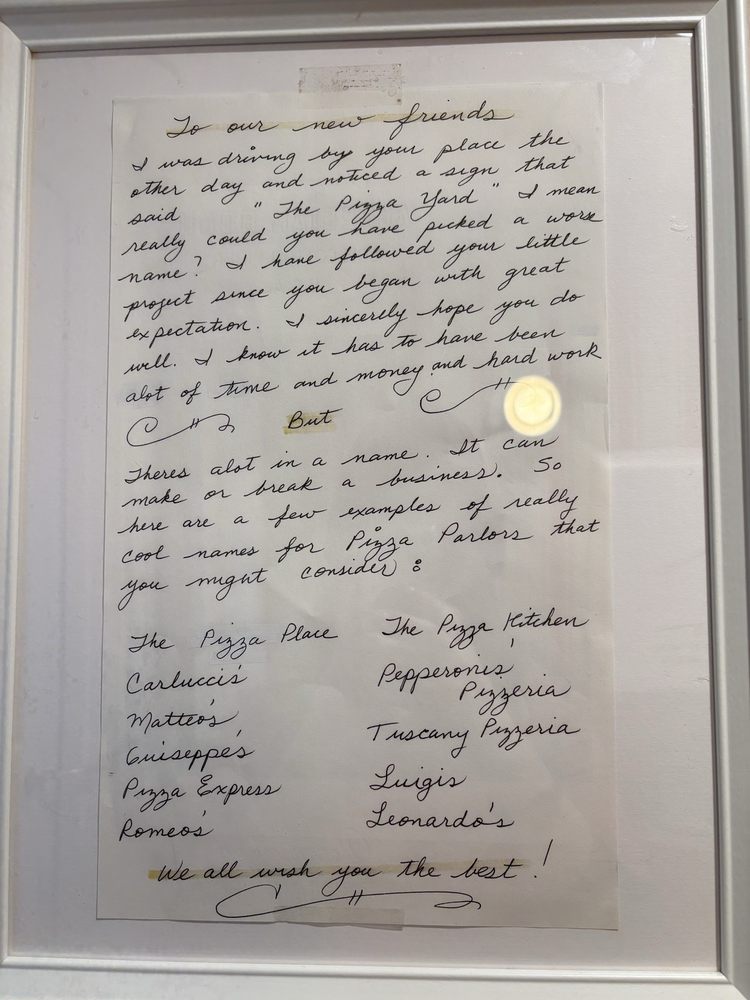 To our new friends
I was driving by your place the
other day and noticed a sign that
said "The Pizza Yard" I mean
really could you have picked a worse
name? I have followed your little
project since you began with great
expectation. I sincerely hope you do
well. I know it has to have been
alot of time and money and hard work
But
Theres alot in a name. It can
make or break a business. So
here are a few examples of really
cool names for Pizza Parlors that
you might consider:
The Pizza Place
Carlucci's
Matteo's
Guiseppe's
Pizza Express
Romeo's
The Pizza Kitchen
Pepperonis'
Pizzeria
Tuscany Pizzeria
Luigis
Leonardo's
We all wish you the best!